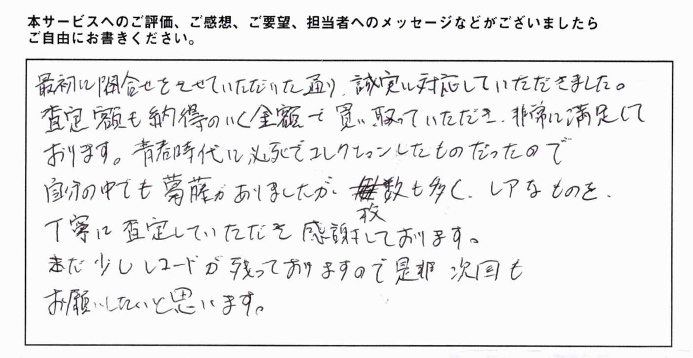 本サービスへのご評価、ご感想、ご要望、担当者へのメッセージなどがございましたら
ご自由にお書きください。
最初に問合せをさせていただいた通り、誠実に対応していただきました。
査定額も納得のいく金額で買い取っていただき、非常に満足して
おります。青春時代に必死でコレクションしたものだったので
自分の中でも葛藤がありましたが、枚数も多く、レアなものを、
丁寧に査定していただき感謝しております。
まだ少しレコードが残っておりますので是非次回も
お願いしたいと思います。